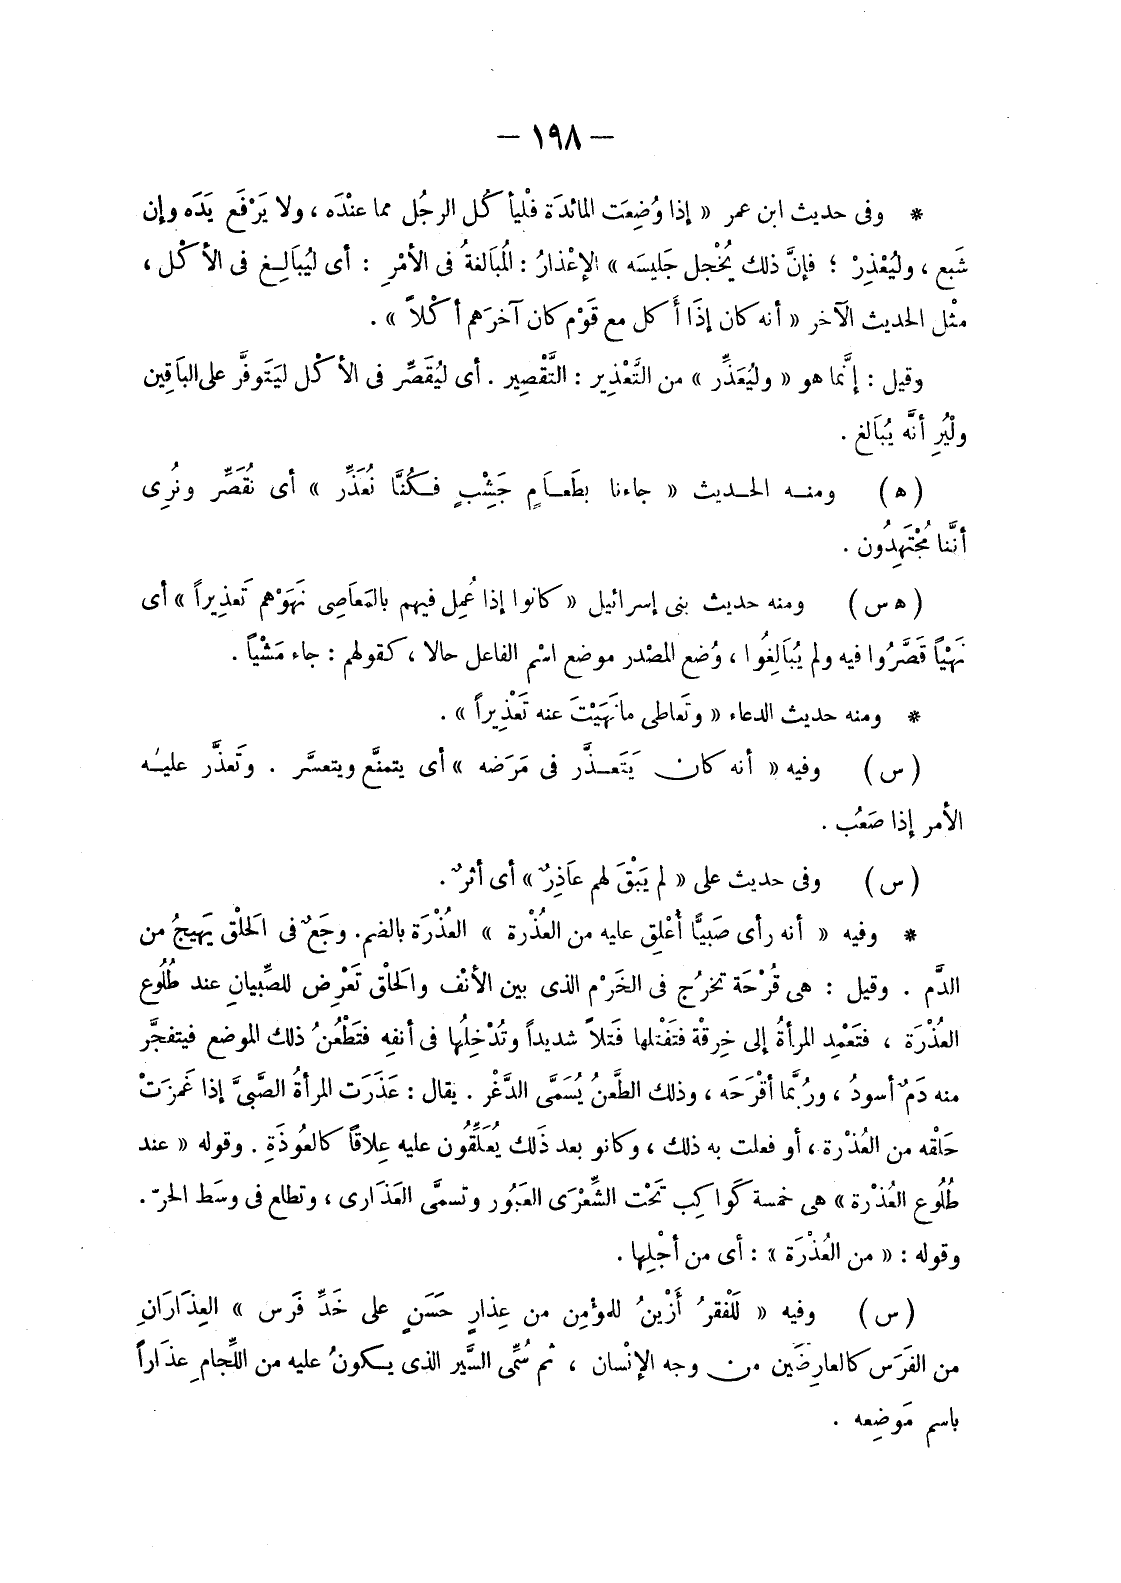 — ١٩٨ —
* وفى حديث ابن عمر « إذا وُضِعَت المائدَة فلْيأكُل الرجُل مما عنْدَه ، ولا يَرْفَع يَدَه وإن
شَبع ، وليُعْذِرْ ؛ فإنَّ ذلك يُخْجل جَليسَه » الإعْذارُ : المُبَالغةُ فى الأمْرِ : أى ليُبَالِغ فى الأكْل ،
مثْل الحديث الآخر « أنه كان إذَا أَكل مع قَوْم كان آخرَهم أكْلاً » .
وقيل : إنَّما هو « وليُعَذِّر » من التَّعْذِير : التَّقْصِير . أى ليُقَصِّر فى الأكْل ليَتَوفَّر على البَاقِين
ولْيُرِ أنَّه يُبَالغ .
( ه ) ومنه الحديث « جاءنا بطَعَامٍ جَشِْبٍ فكُنَّا نُعَذِّر » أى نُقَصِّر ونُرِى
أنَّنا مُجْتَهِدُون .
( ه س ) ومنه حديث بنى إسرائيل « كانوا إذا عُمِل فيهم بالمَعَاصِى نَهَوْهم تَعذِيراً » أى
نَهْياً قَصَّرُوا فيه ولم يُبَالِغُوا ، وُضع المصْدر موضع اسْم الفاعل حالا ، كقولهم : جاء مَشْياً .
* ومنه حديث الدعاء « وتَعاطى ما نَهَيْتَ عنه تَعْذِيراً » .
( س ) وفيه « أنه كان يَتَعذَّر فى مَرَضه » أى يتمنَّع ويتعسَّر . وتَعذَّر عليه
الأمر إذا صَعُب .
( س ) وفى حديث على « لم يَبْقَ لهم عاَذِرٌ » أى أثرٌ .
* وفيه « أنه رأى صَبيًّا أُعْلِق عليه من العُذْرة » العُذْرَة بالضم. وجَعٌ فى الحَلْق يَهيجُ من
الدَّم . وقيل : هى قُرْحَة تخرُج فى الخَرْم الذى بين الأنْف والحَلْق تَعْرِض للصِّبيانِ عند طُلُوع
العُذْرَة ، فتَعْمِد المرأةُ إلى خِرقْة فتَفْتلها فَتلاً شديداً وتُدْخِلُها فى أنفِه فتَطْعُنُ ذلك الموضع فيتفجَّر
منه دَمٌ أسودُ ، ورُبَّما أقْرَحَه ، وذلك الطَّعنُ يُسَمَّى الدَّغْر . يقال : عَذَرَت المرأةُ الصَّبىَّ إذا غَمزَتْ
حَلْقه من العُذْرة ، أو فعلت به ذلك ، وكانو بعد ذَلك يُعَلِّقُون عليه عِلاقاً كالعُوذَةِ . وقوله « عند
طُلُوع العُذْرة » هى خمسة كَواكِب تَحْت الشِّعْرَى العَبُور وتسمَّى العَذَارى ، وتطلع فى وسَط الحرّ .
وقوله : « من العُذْرَة » : أى من أجْلِها .
( س ) وفيه « لَلْفقرُ أَزْينُ للمؤمِن من عِذارٍ حَسَنٍ على خَدِّ فَرَس » العِذَارَانِ
من الفَرَس كالعارِضَين من وجه الإنْسان ، ثم سُمِّى السَّير الذى يكونُ عليه من اللِّجامِ عذَاراً
باسم مَوضِعه .